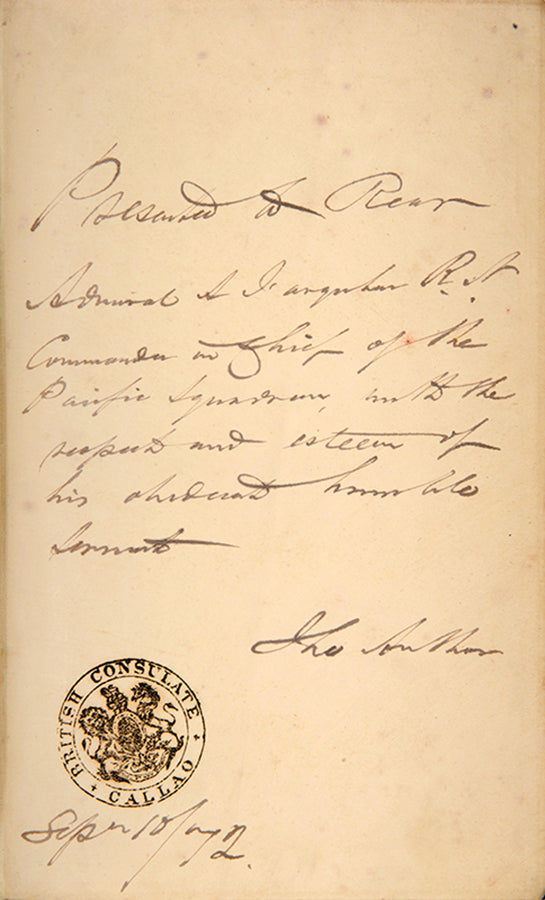 Presented to Rear
Admiral A Farquhar R.N.
Commander in Chief of the
Pacific Squadron, with the
respect and esteem of
his obedient humble
servant
The Author
BRITISH CONSULATE
CALLAO
Sepr 10/72